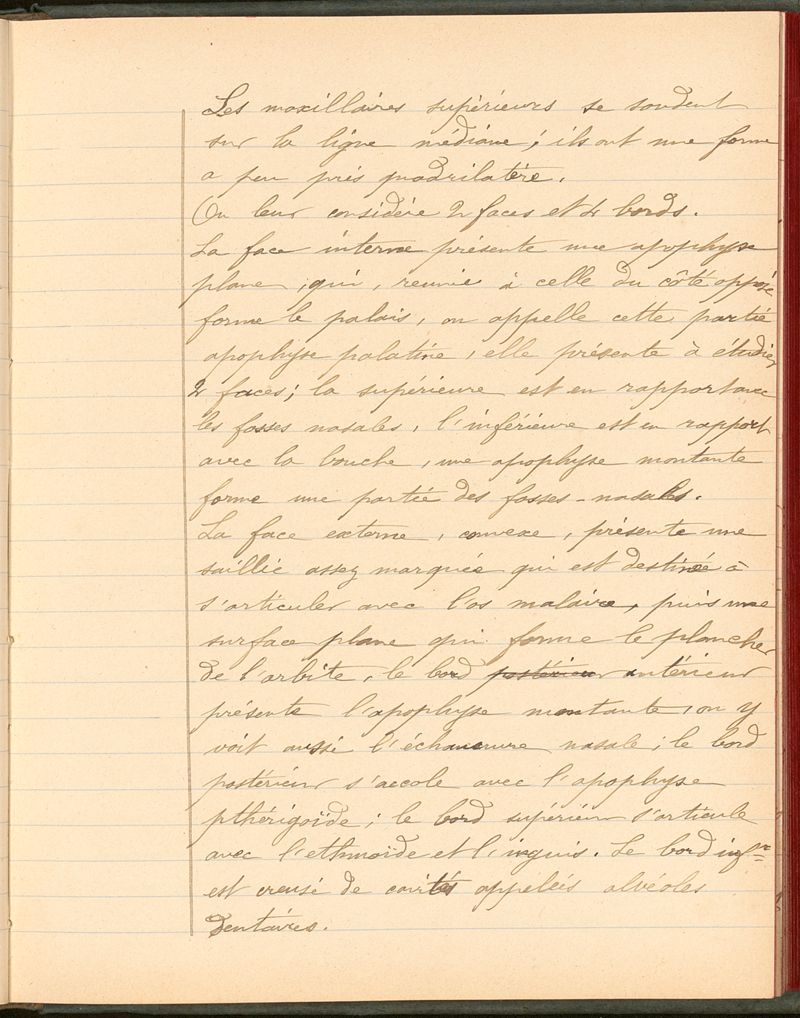 Les maxillaires supérieurs se soudent
sur la ligne médiane ; ils ont une forme
a peu près quadrilatère.
On leur considère 2 faces et 4 bords.
La face interne présente une apophyse
plane, qui, reunie à celle du côté opposé
forme le palais, on appelle cette partie
apophyse palatine, elle présente à étudier
2 faces ; la supérieure est en rapport avec
les fosses nasales, l'inférieure est en rapport
avec la bouche, une apophyse montante
forme une partie des fosses-nasales.
La face externe, convexe, présente une
saillie assez marquée qui est destinée à
s'articuler avec l'os malaire, puis une
surface plane qui forme le plancher
de l'orbite, le bord postérieur antérieur
présente l'apophyse montante, on y
voit aussi l'échancrure nasale ; le bord
postérieur s'accole avec l'apophyse
pthérigoïde ; le bord supérieur s'articule
avec l'ethmoïde et l'inguis. Le bord infre
est creusé de cavités appelées alvéoles
dentaires.